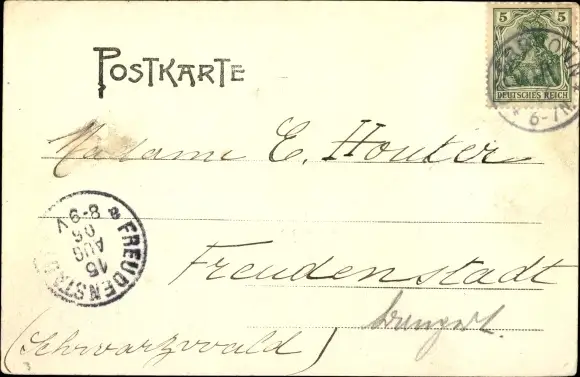 POSTKARTE
5 5
DEUTSCHES REICH
6-7N
Madame E. Houter
FREUDENSTADT
15
AUG
06
8-9V
a
Freudenstadt
(Schwarzwald)